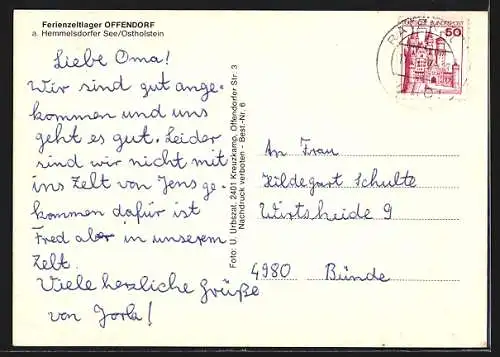 Ferienzeltlager OFFENDORF
a. Hemmelsdorfer See/Ostholstein
Liebe Oma!
Wir sind gut ange-
kommen und uns
geht es gut. Leider
sind wir nicht mit
ins Zelt von Jens ge-
kommen dafür ist
Fred aber in unserem
Zelt.
Viele herzliche Grüße
von
Foto: U. Urbszat, 2401 Kreuzkamp, Offendorfer Str. 3
Nachdruck verboten - Best.-Nr. 6
DEUTSCHE BUNDESPOST
50
An Frau
Hildegart Schulte
Wirtsheide 9
4980 Bünde